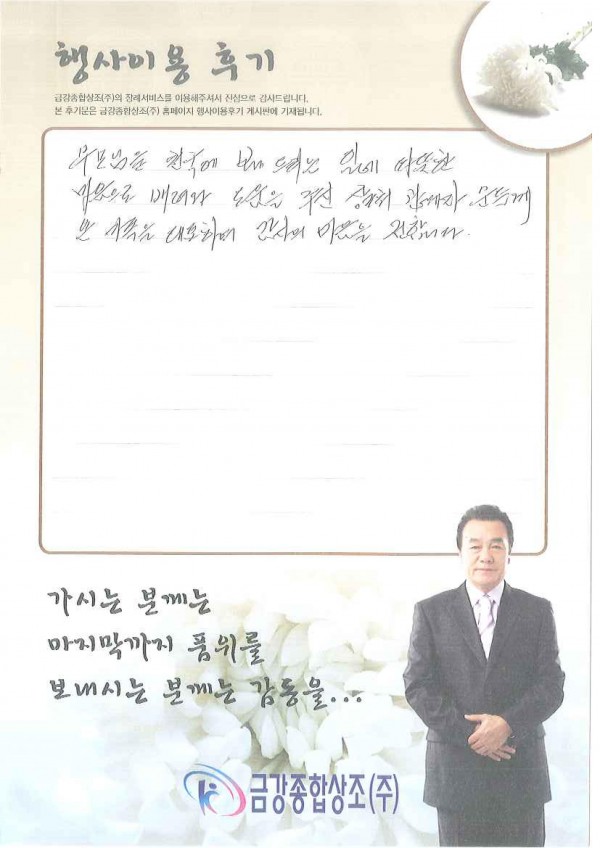 행사이용 후기
금강종합상조(주)의 장례서비스를 이용해주셔서 진심으로 감사드립니다.
본 후기문은 금강종합상조(주) 홈페이지 행사이용후기 게시판에 기재됩니다.
부모님을 천국에 보내 드리는 일에 따뜻한
마음으로 배려와 도움을 주신
온 가족을 대표하여 감사의 마음을 전합니다.
가시는 분께는
마지막까지 품위를
보내시는 분께는 감동을...
금강종합상조(주)